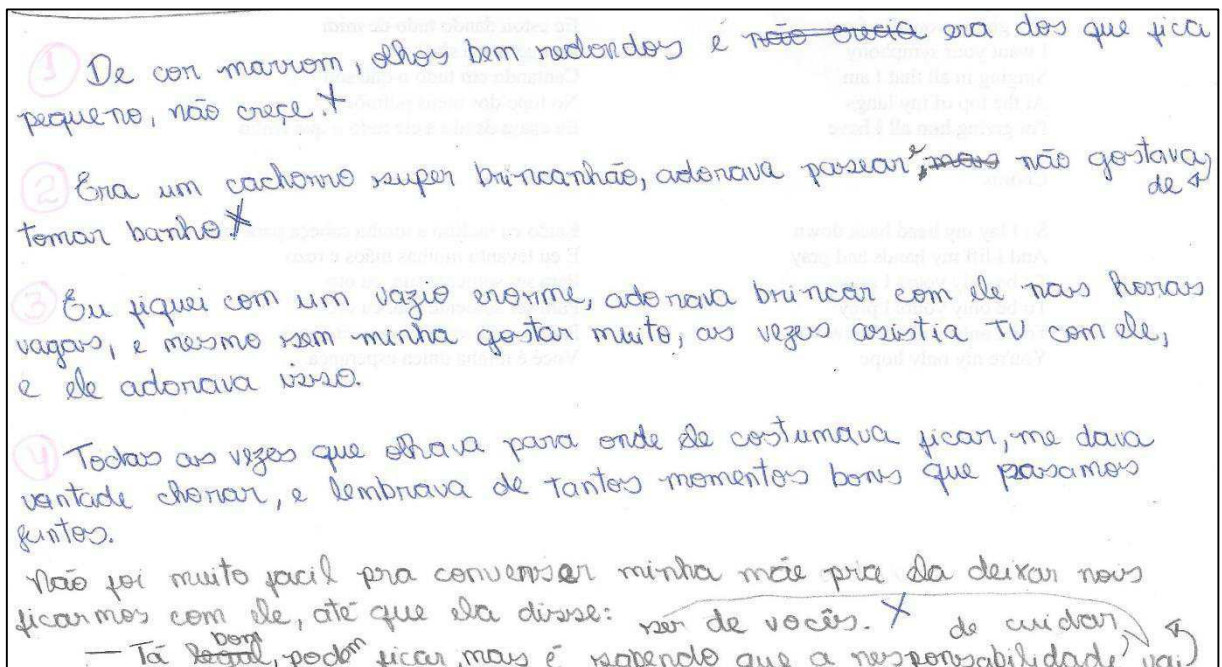 ① De cor marrom, olhos bem redondos é não crecia era dos que fica
pequeno, não creçe. X
② Era um cachorro super brincanhão, adorava passear, e mas não gostava
de
tomar banho X
③ Eu fiquei com um vazio enorme, adorava brincar com ele nas horas
vagas, e mesmo sem minha gostar muito, as vezes asistia TV com ele,
e ele adorava isso.
④ Todas as vezes que olhava para onde ele costumava ficar, me dava
vontade chorar, e lembrava de tantos momentos bons que pasamos
juntos.
Não foi muito facil pra convenser minha mãe pra ela deixar nois
ficarmos com ele, até que ela disse: ser de vocês. X de cuidar
— Tá legal bom, podem ficar, mas é sabendo que a responsabilidade vai